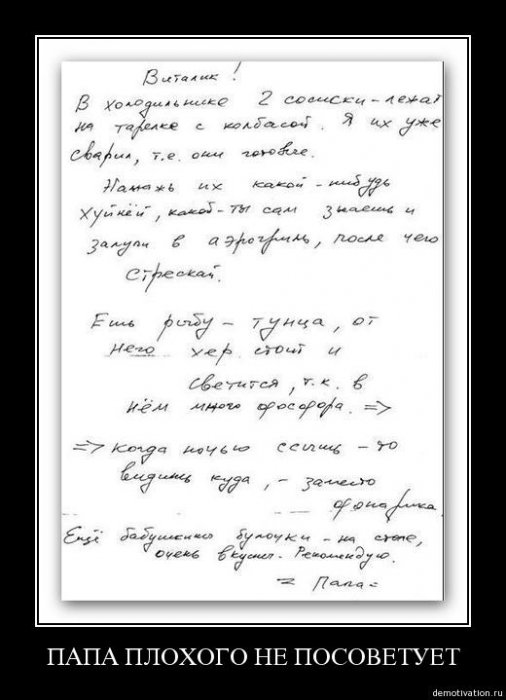 Виталик!
В холодильнике 2 сосиски - лежат
на тарелке с колбасой. Я их уже
сварил, т.е. они готовые.
Намажь их какой-нибудь
хуйнёй, какой - ты сам знаешь и
залупи в аэрогриль, после чего
стрескай.
Ешь рыбу - тунца, от
него хер стоит и
светится, т.к. в
нём много фосфора. =>
=> когда ночью ссышь - то
видишь куда, - заместо
фонарика.
Ещё бабушкины булочки - на столе,
очень вкусны. Рекомендую.
= Папа =
ПАПА ПЛОХОГО НЕ ПОСОВЕТУЕТ
demotivation.ru